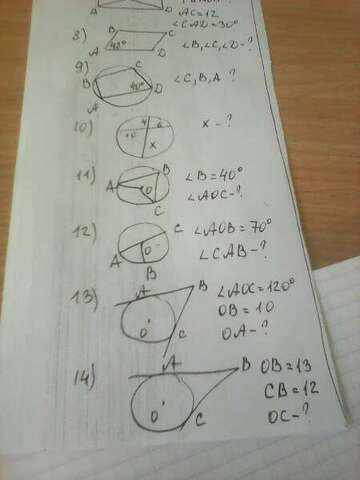 A D
AC=12
∠CAD=30°
8) B C
A 42° D
∠B,∠C,∠D-?
9) C
B 40° D
A
∠C,B,A ?
10) 4 6
10 x
x-?
11) B
A O
C
∠B=40°
∠AOC-?
12) C
O
A
B
∠AOB=70°
∠CAB-?
13) A B
O C
∠AOC=120°
OB=10
OA-?
14) A B
O C
OB=13
CB=12
OC-?